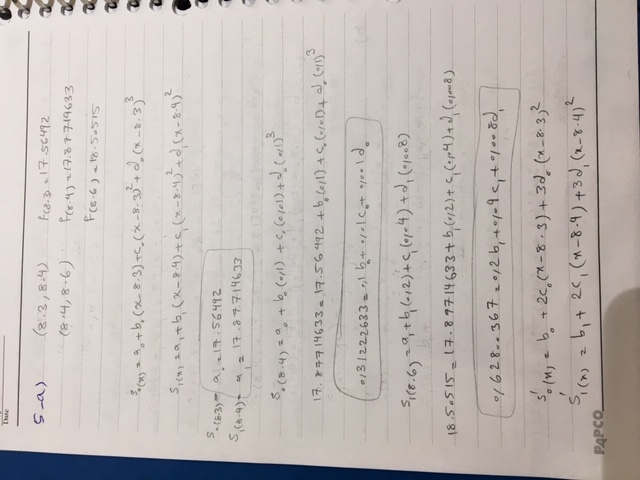 Date
5-a) (8.3, 8.4) f(8.3) = 17.56492
(8.4, 8.6) f(8.4) = 17.87714633
f(8.6) = 18.50515
S₀(x) = a₀ + b₀(x-8.3) + c₀(x-8.3)² + d₀(x-8.3)³
S₁(x) = a₁ + b₁(x-8.4) + c₁(x-8.4)² + d₁(x-8.4)²
S₀(8.3) = a₀ = 17.56492
S₁(8.4) = a₁ = 17.87714633
S₀(8.4) = a₀ + b₀(0,1) + c₀(0,01) + d₀(0,1)³
17.87714633 = 17.56492 + b₀(0,1) + c₀(0,01) + d₀(0,1)³
0,31222633 = 0,1 b₀ + 0,01 c₀ + 0,001 d₀
S₁(8.6) = a₁ + b₁(0,2) + c₁(0,04) + d₁(0,008)
18.50515 = 17.87714633 + b₁(0,2) + c₁(0,04) + d₁(0,008)
0,62800367 = 0,2 b₁ + 0,04 c₁ + 0,008 d₁
S₀'(x) = b₀ + 2c₀(x-8.3) + 3d₀(x-8.3)²
S₁'(x) = b₁ + 2c₁(x-8.4) + 3d₁(x-8.4)²
PAPCO